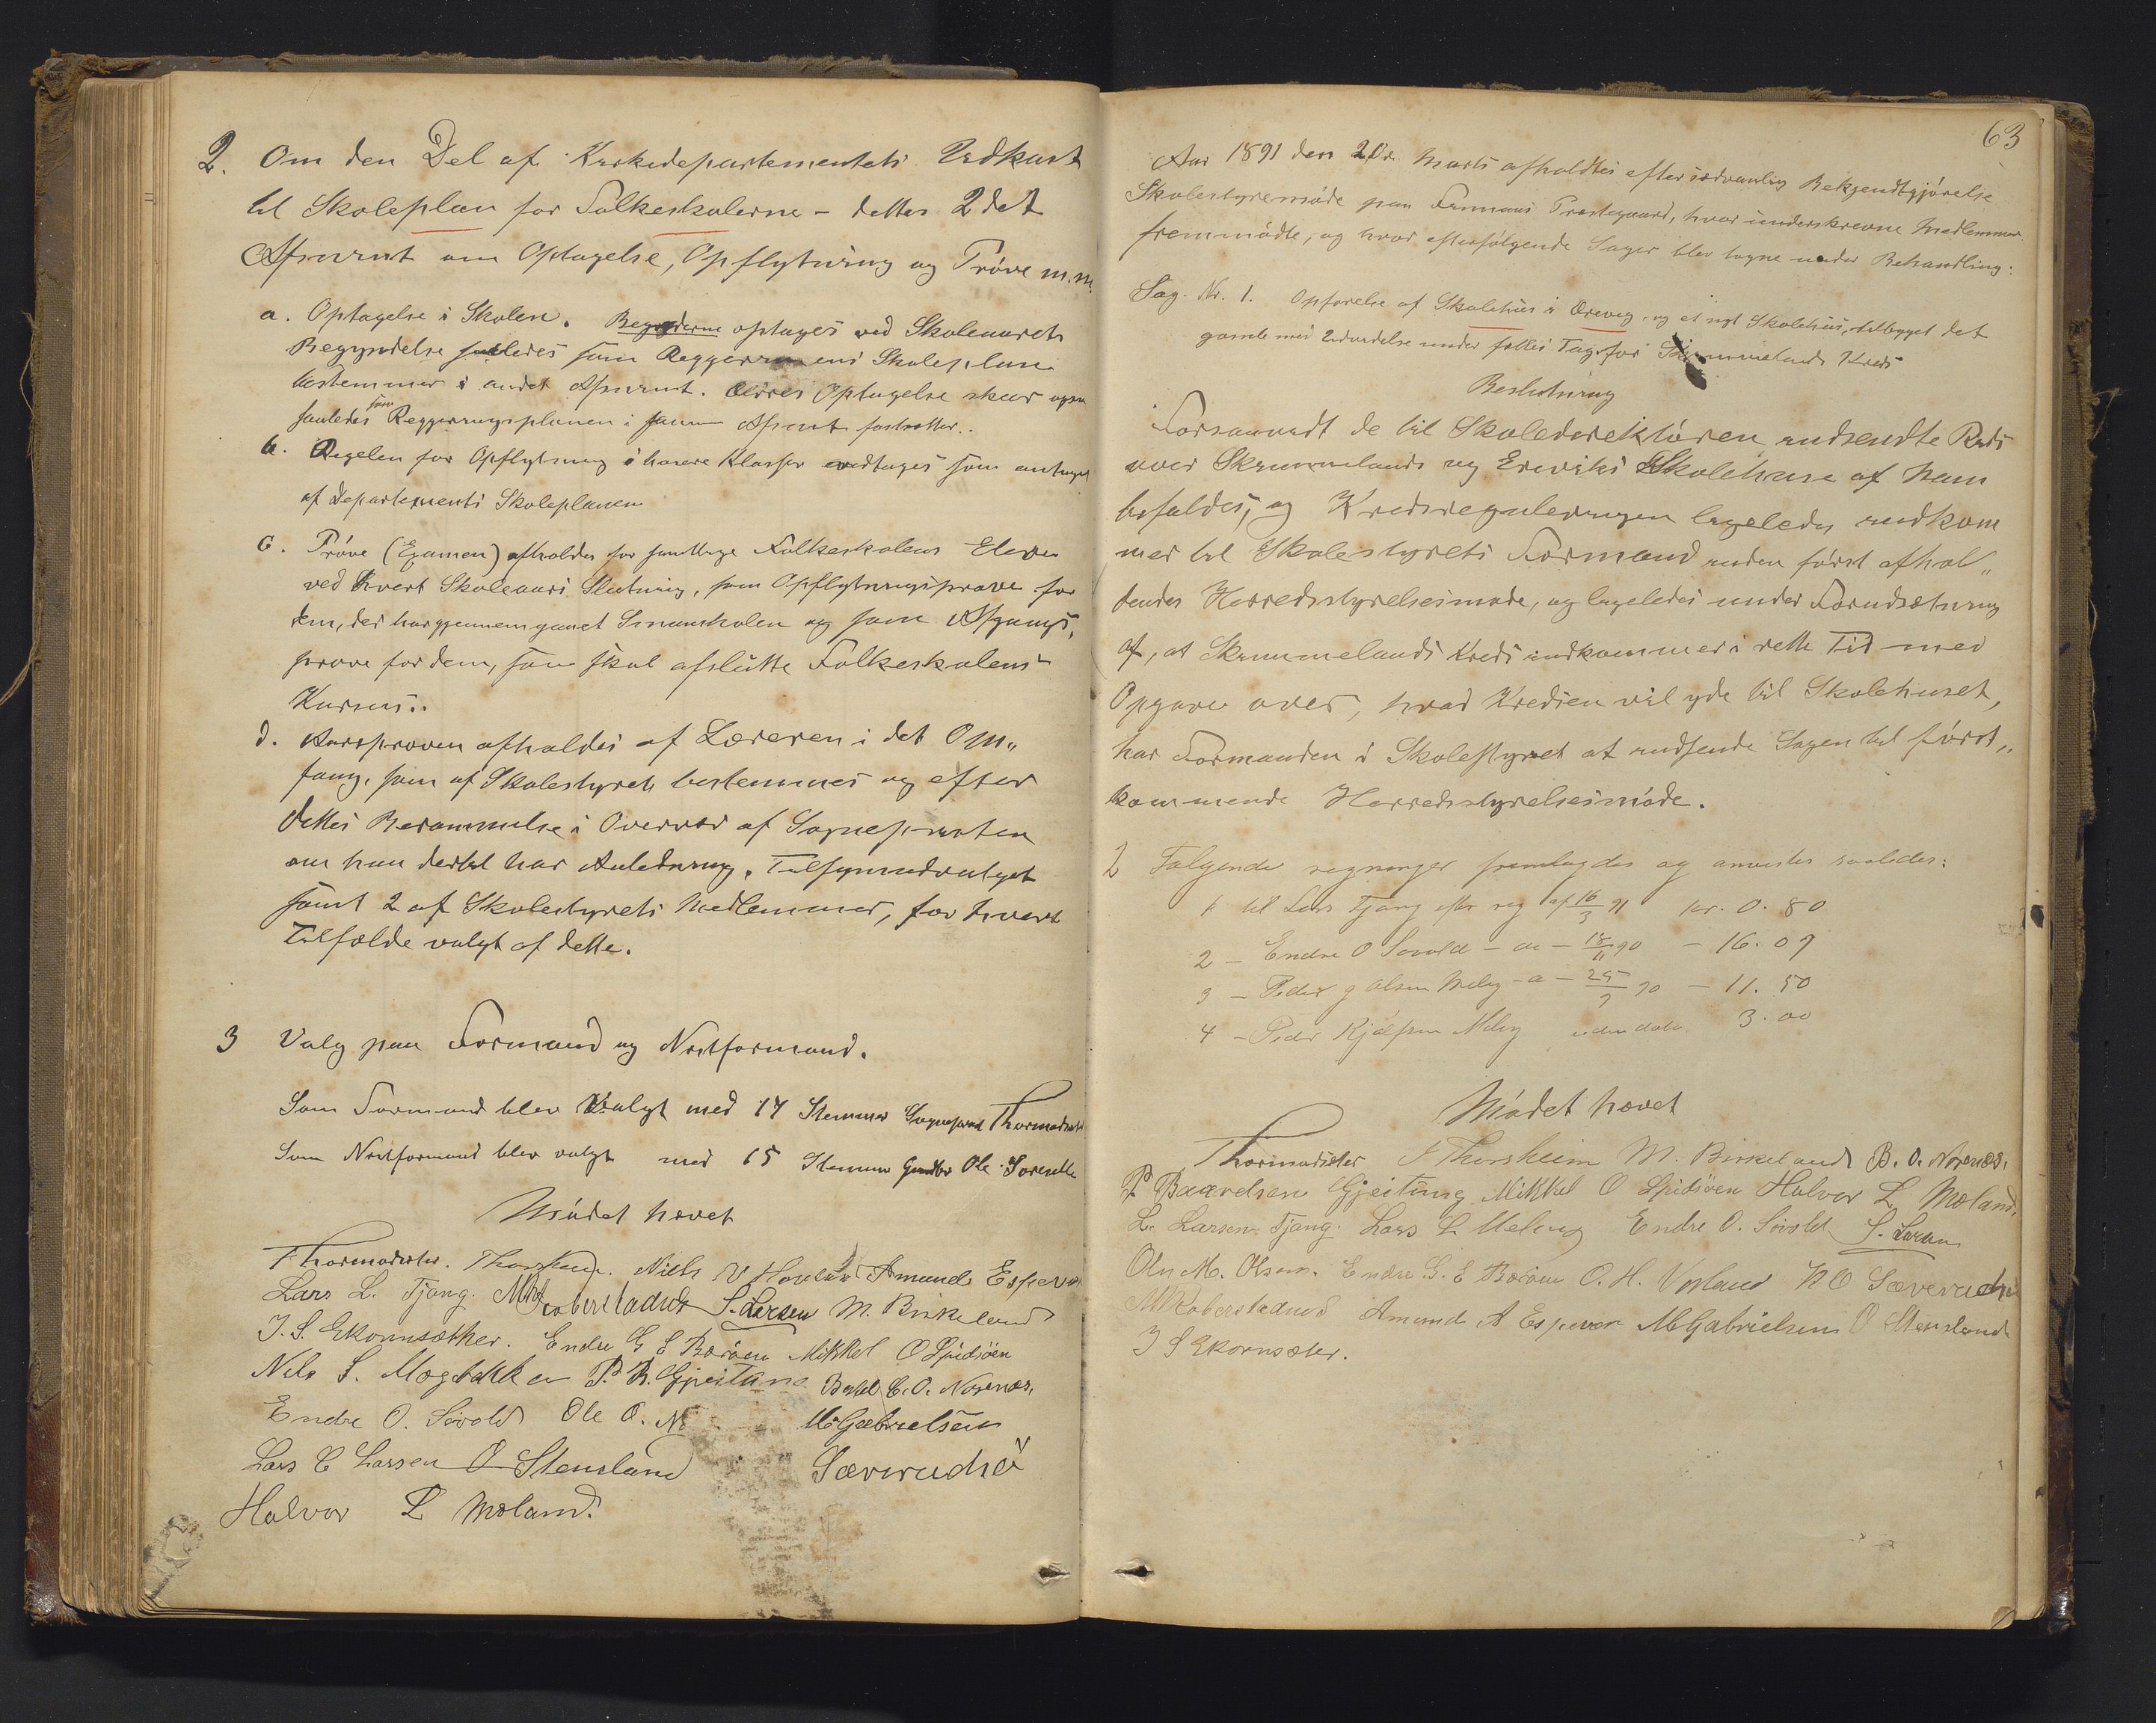 2. Om den Del af Kirkedepartementets Udkast
til Skoleplan for Folkeskolerne - dettes 2det
Afsnit om Optagelse, Opflytning og Prøve m.m.
a. Optagelse i Skolen. Begynderne optages ved Skoleaarets
Begyndelse saaledes som Skoleplan
bestemmer i andet Afsnit. Optagelse skeer ogsaa
saaledes som Reggjeringsplanen i samme Afsnit fastsætter.
b. Regelen for Opflytning i høiere Klasser vedtages som antaget
af Departements Skoleplanen
c. Prøve (Examen) afholdes for samtlige Folkeskolens Elever
ved hvert Skoleaars Slutning, som Opflytningsprøve for
dem, der har gjennemgaaet Smaaskolen og som Afgangs„
prøve for dem, som skal afslutte Folkeskolens
Kursus.
d. Aarsprøven afholdes af Læreren i det Om„
fang, som af Skolestyret bestemmes og efter
dettes Berammelse i Overvær af Sognepresten
om han dertil har Anledning, Tilsynsudvalget
samt 2 af Skolestyrets Medlemmer, for hvert
Tilfælde valgt af dette.
3 Valg paa Formand og Næstformand.
Som Formand blev Valgt med 14 Stemmer Sogneprest Thormodsæter
Som Næstformand blev valgt med 15 Stemmer Ole
Mødet hævet
Thormodsæter. Thorsheim. Niels Amund Espevær
Lars L. Tjong. M Robberstadnes S. Larsen M. Birkeland
J. S. Ekornsæther. Endre G E Børøen Mikkel O Spidsøen
Nils S. P. B. Gjeitung B. O. Norenæs.
Endre O. Sivold Ole O. M Gabrielsen
Lars Larsen O Stensland Sæverudsø
Halvor L Moland.
63
Aar 1891 den 20de Marts afholdtes efter sædvanlig Bekjendtgjørelse
Skolestyremøde paa Finnaas Prestegaard, hvor underskrevne Medlemmer
fremmødte, og hvor efterfølgende Sager blev tagne under Behandling:
Sag. Nr. 1. Opførelse af Skolehus i og et nyt Skolehus, tilbygget det
gamle med Udvidelse under fælles Tag for Skimmelands Kreds
Beslutning
Forsaavidt de til Skoledirektøren indsendte
over Skimmelands og Skolehuse af ham
befaldes, og Kredsreguleringen ligeledes indkom
mer til Skolestyrets Formand inden først afhol„
dendes Herredsstyrelsesmøde, og ligeledes under Forudsætning
af, at Skimmelands Kreds indkommer i rette Tid med
Opgave over, hvad Kredsen vil yde til Skolehuset,
har Formanden i Skolestyret at indsende Sagen til først„
kommende Herredsstyrelsesmøde.
2 Følgende regninger fremlagdes og anvistes saaledes:
1 til Lars Tjong efter reg af 16/3 91 kr. 0. 80
2 - Endre O Sivold - do - 18/11 90 - 16. 09
3 - Peder Olsen Meling - do - 25/9 90 - 11. 50
4 - Peder Meling uden dato 3. 00
Mødet hævet
Thormodsæter Thorsheim M. Birkeland B. O. Norenæs,
P Baardsen Gjeitung Mikkel O Spidsøen Halvor L Moland,
L. Larsen Tjong. Lars L Meling Endre O. Sivold S. Larsen
Ole M. Olsen. Endre G. E Børøen O. H. Vestand N O Sæverudsø
M Robberstadnes Amund A Espevær M Gabrielsen O Stensland
J S Ekornsæter.